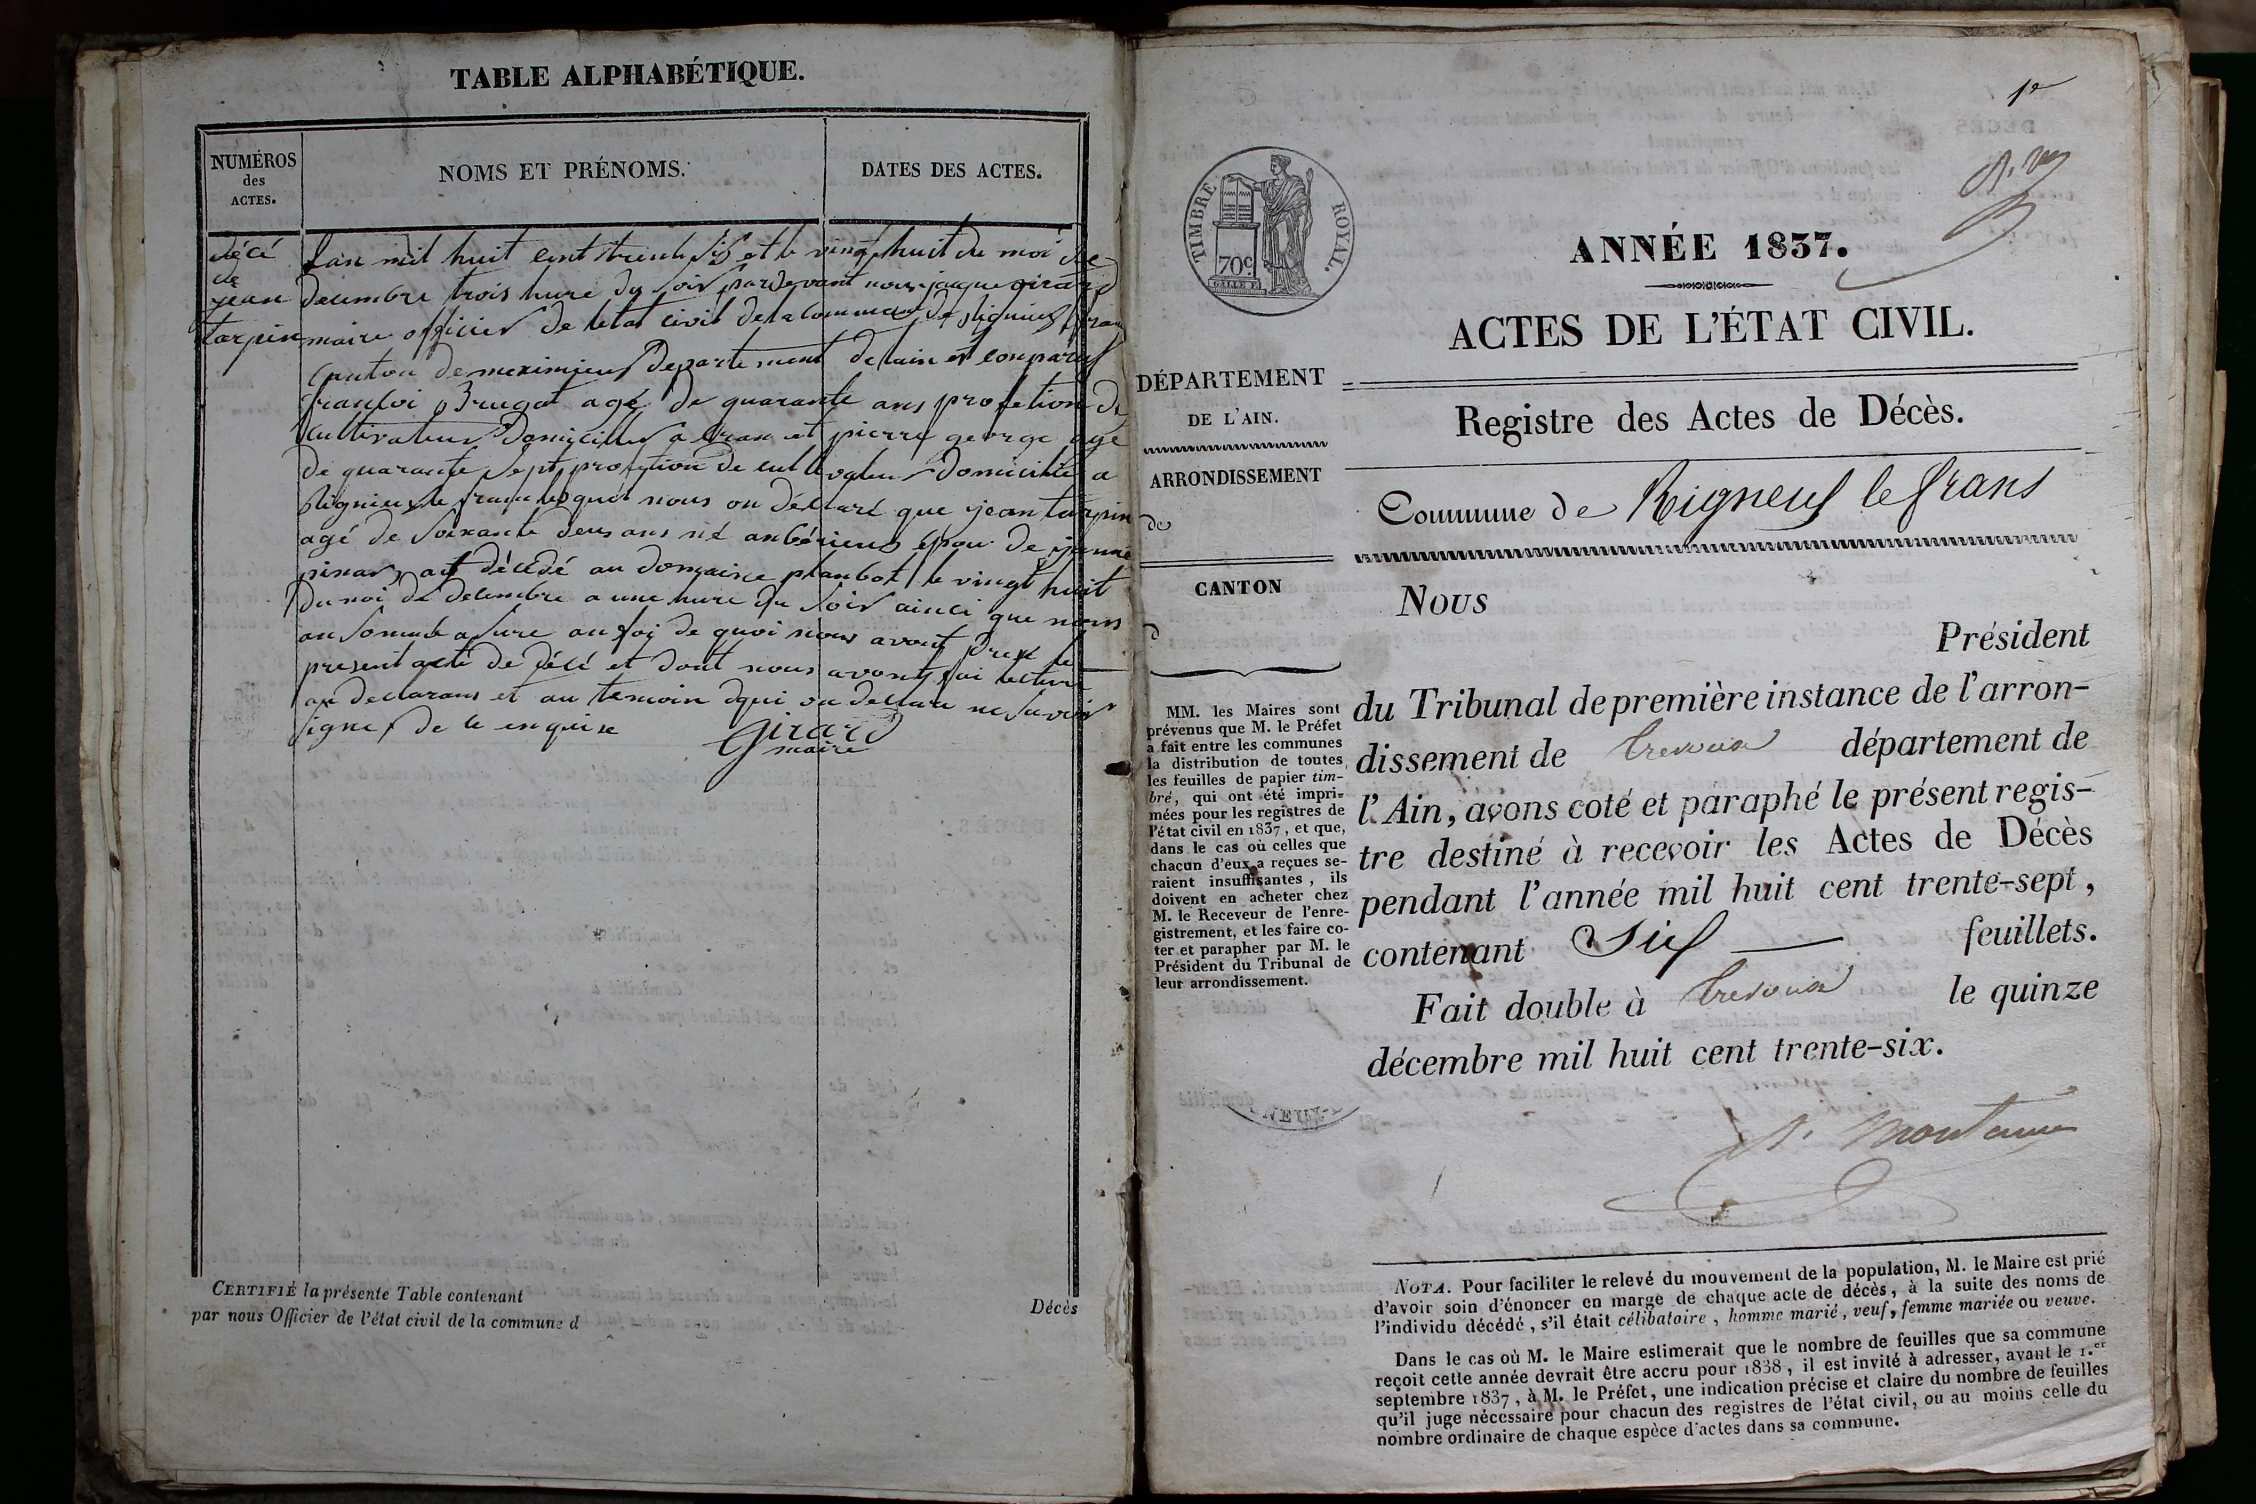 TABLE ALPHABÉTIQUE.
NUMÉROS
des
ACTES.
NOMS ET PRÉNOMS.
DATES DES ACTES.
décé
de
jean
tarpin
Lan mil huit cent trente six et le vingt huit du moi de
decembre trois hure du soir pardevant nous jaque girard
maire officier de letat civil de la commune de Rignieux le franc
canton de meximieux departement de lain est comparus
francoi Brugat agé de quarante ans profetion de
cultivateur domicilier a Crans et pierre george agé
de quarante sept profetion de cultivateur domicilié a
Rignieux le franc lesquel nous on déclaré que jean tarpin
agé de soixante deux ans né anbérieux épou de janne
pinar at décédé au domaine planbot le vingt huit
du moi de decembre a une hure du soir ainci que nous
an somme asure an foi de quoi nous avont dressé le
present acte de décé et dont nous avont fai lecture
ax declarans et au temoin qui on declaré ne savoir
signé de ce enquise
Girard
maire
CERTIFIÉ la présente Table contenant
Décès
par nous Officier de l'état civil de la commune d
1er
TIMBRE ROYAL.
70c
ANNÉE 1837.
ACTES DE L'ÉTAT CIVIL.
DÉPARTEMENT
DE L'AIN.
ARRONDISSEMENT
de
CANTON
d
MM. les Maires sont
prévenus que M. le Préfet
a fait entre les communes
la distribution de toutes
les feuilles de papier tim-
bré, qui ont été impri-
mées pour les registres de
l'état civil en 1837, et que,
dans le cas où celles que
chacun d'eux a reçues se-
raient insuffisantes, ils
doivent en acheter chez
M. le Receveur de l'enre-
gistrement, et les faire co-
ter et parapher par M. le
Président du Tribunal de
leur arrondissement.
Registre des Actes de Décès.
Commune de Rigneux le frans
Nous
Président
du Tribunal de première instance de l'arron-
dissement de Trevoux département de
l'Ain, avons coté et paraphé le présent regis-
tre destiné à recevoir les Actes de Décès
pendant l'année mil huit cent trente-sept,
contenant Six feuillets.
Fait double à Trevoux le quinze
décembre mil huit cent trente-six.
NOTA. Pour faciliter le relevé du mouvement de la population, M. le Maire est prié
d'avoir soin d'énoncer en marge de chaque acte de décès, à la suite des noms de
l'individu décédé, s'il était célibataire, homme marié, veuf, femme mariée ou veuve.
Dans le cas où M. le Maire estimerait que le nombre de feuilles que sa commune
reçoit cette année devrait être accru pour 1838, il est invité à adresser, avant le 1.er
septembre 1837, à M. le Préfet, une indication précise et claire du nombre de feuilles
qu'il juge nécessaire pour chacun des registres de l'état civil, ou au moins celle du
nombre ordinaire de chaque espèce d'actes dans sa commune.